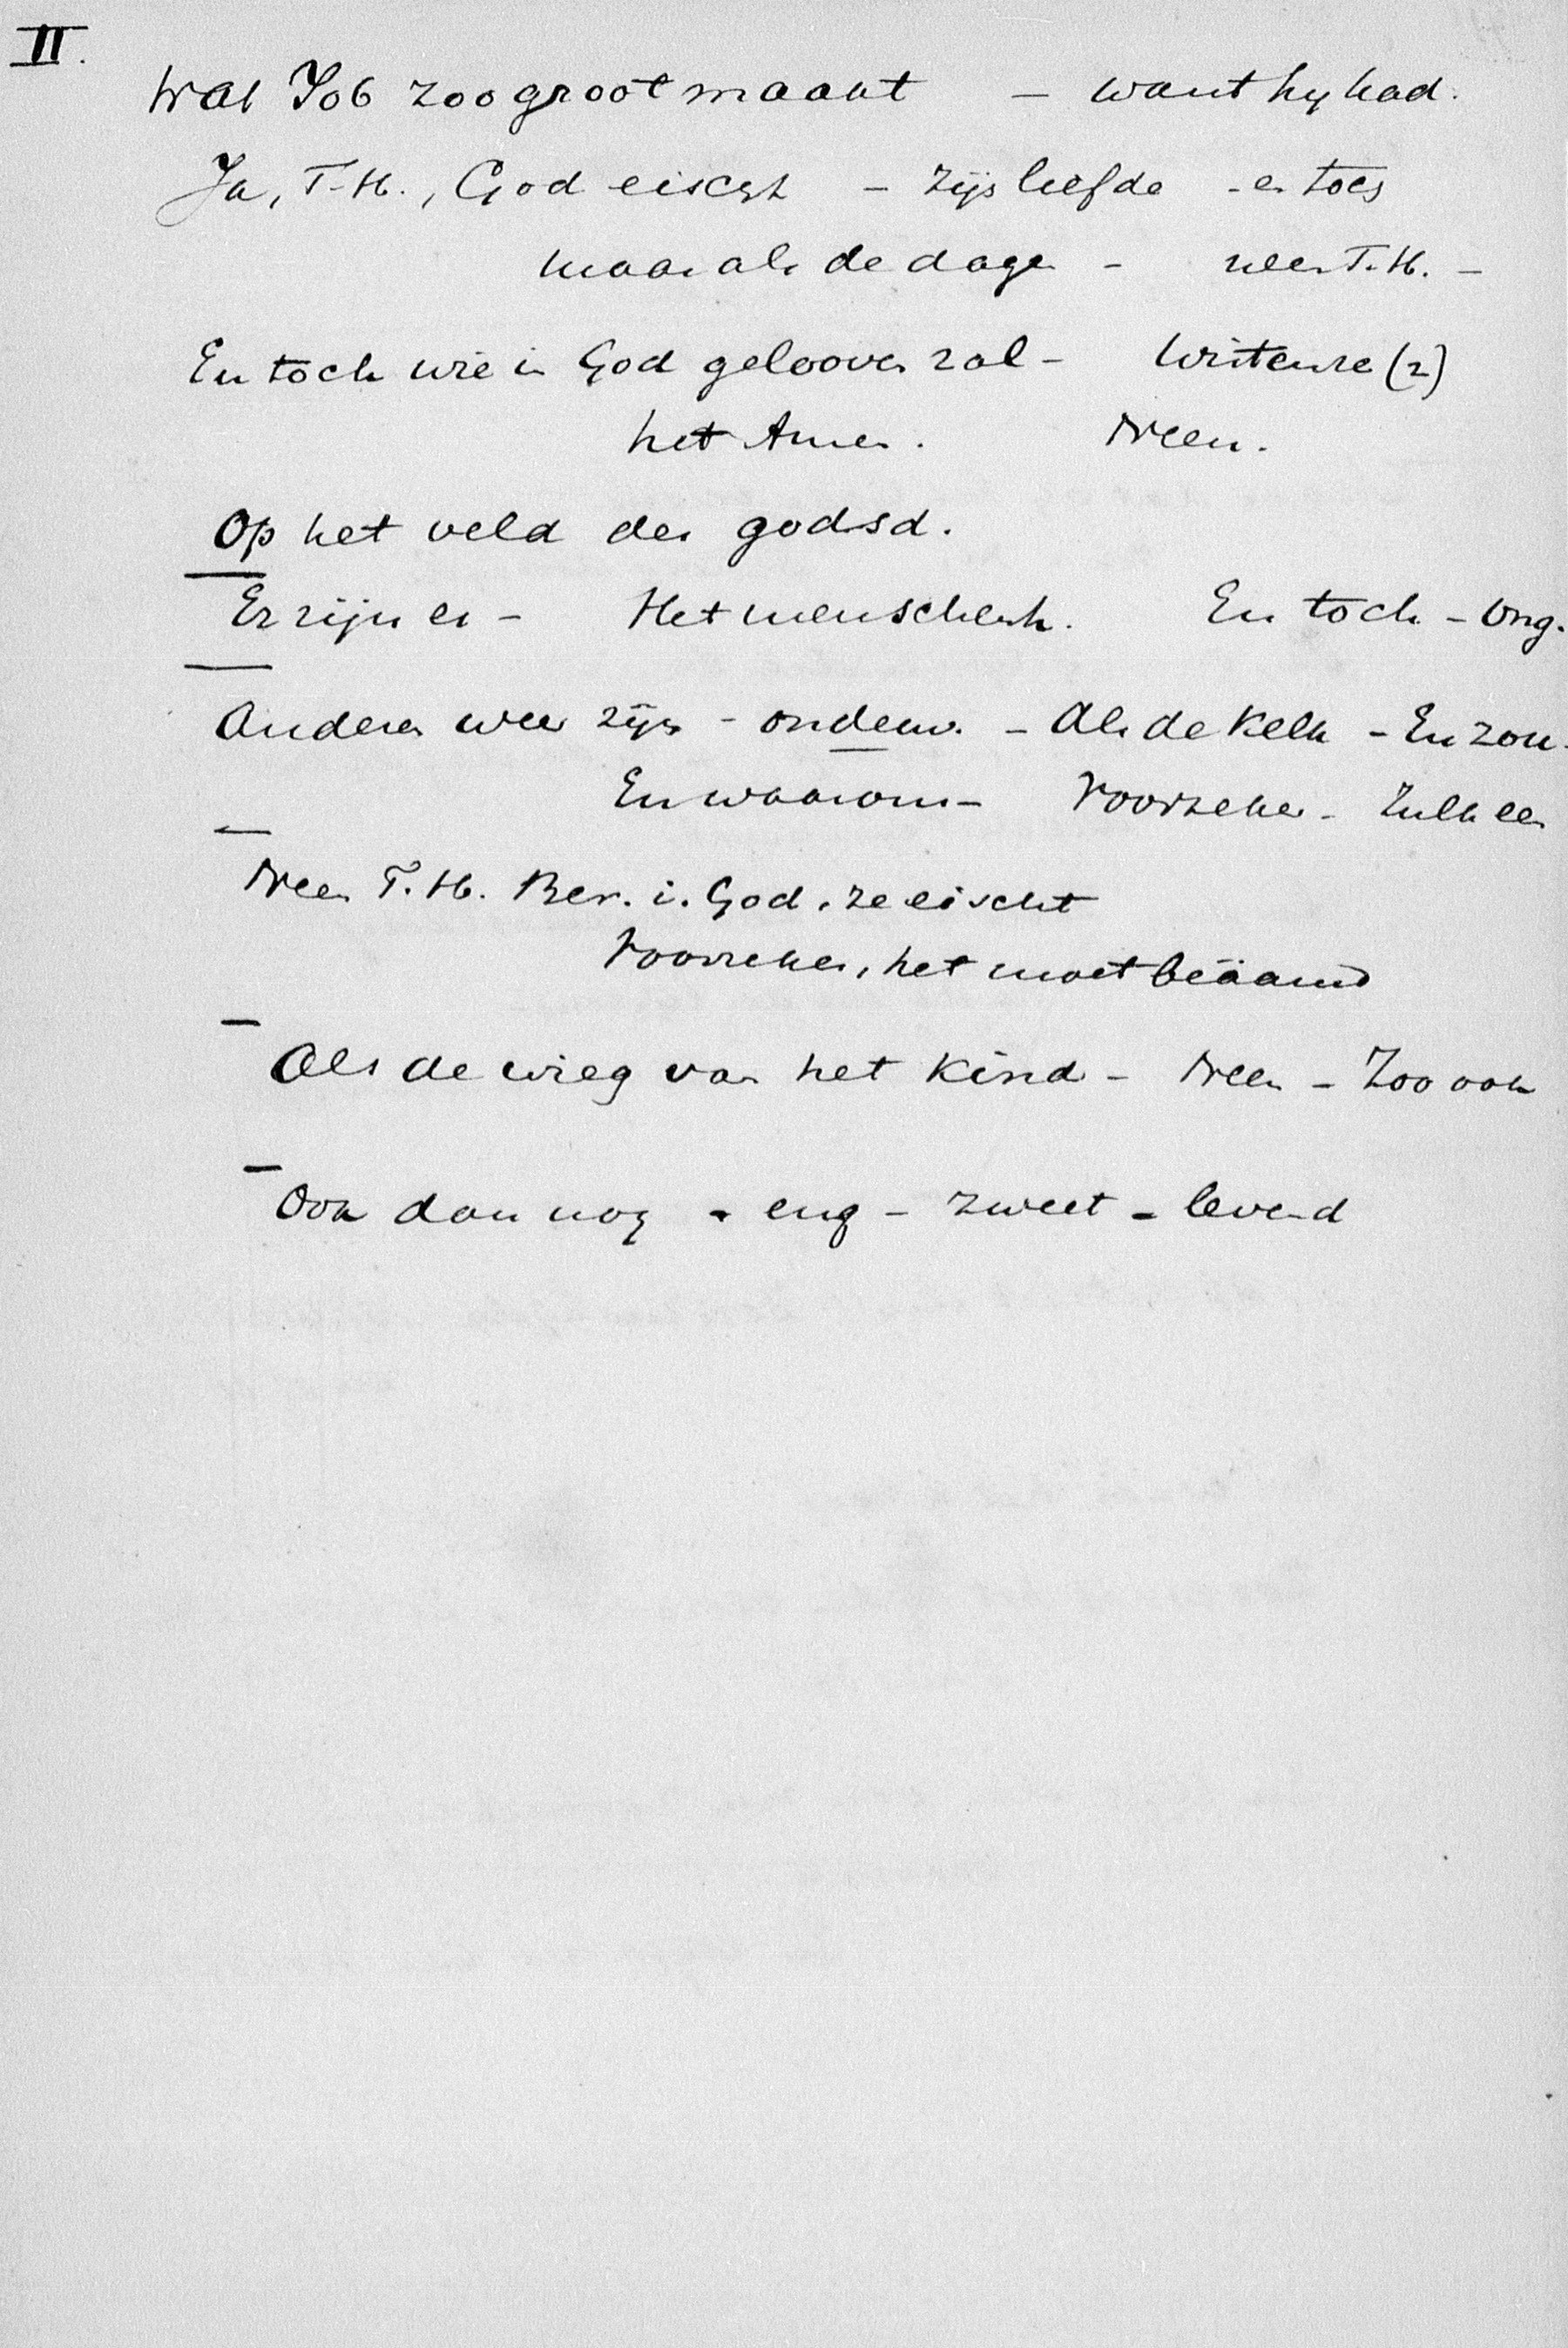 II.
Wat Job zoo groot maakt – want hy had.
Ja, T. H., God eischt – zijn liefde – en toch
maar als de dagen – neen T. H. –
En toch wie in God gelooven zal – Wist enze (2)
het Amen. Neen.
Op het veld der godsd.
Er zijn er – Het menschenh. En toch – Ong.
Anderen weer zijn – ondeuw. – Als de kelk – En zou.
En waarom – Voorzeker – Zulk een
Neen T. H. Ber. i. God, ze eischt
Voorzeker, het moet beäamd
Als de wieg van het kind – Neen – Zoo ook
Ook dan nog – eng – zweet – levend